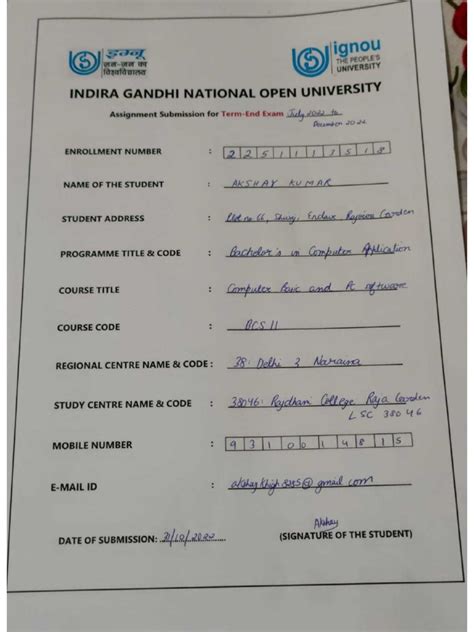 इग्नू
जन-जन का
विश्वविद्यालय
ignou
THE PEOPLE'S
UNIVERSITY
INDIRA GANDHI NATIONAL OPEN UNIVERSITY
Assignment Submission for Term-End Exam July 2022 to
December 2022
ENROLLMENT NUMBER : 2251113518
NAME OF THE STUDENT : AKSHAY KUMAR
STUDENT ADDRESS : no 66, Enclave Garden
PROGRAMME TITLE & CODE : Bachelor's in Computer Application
COURSE TITLE : Computer Basic and PC
COURSE CODE : BCS 11
REGIONAL CENTRE NAME & CODE : 38: Delhi 3 Naraina
STUDY CENTRE NAME & CODE : 38046: Rajdhani College Raja Garden
LSC 38046
MOBILE NUMBER : 9310014815
E-MAIL ID : @gmail.com
DATE OF SUBMISSION: 31/10/2022
Akshay
(SIGNATURE OF THE STUDENT)